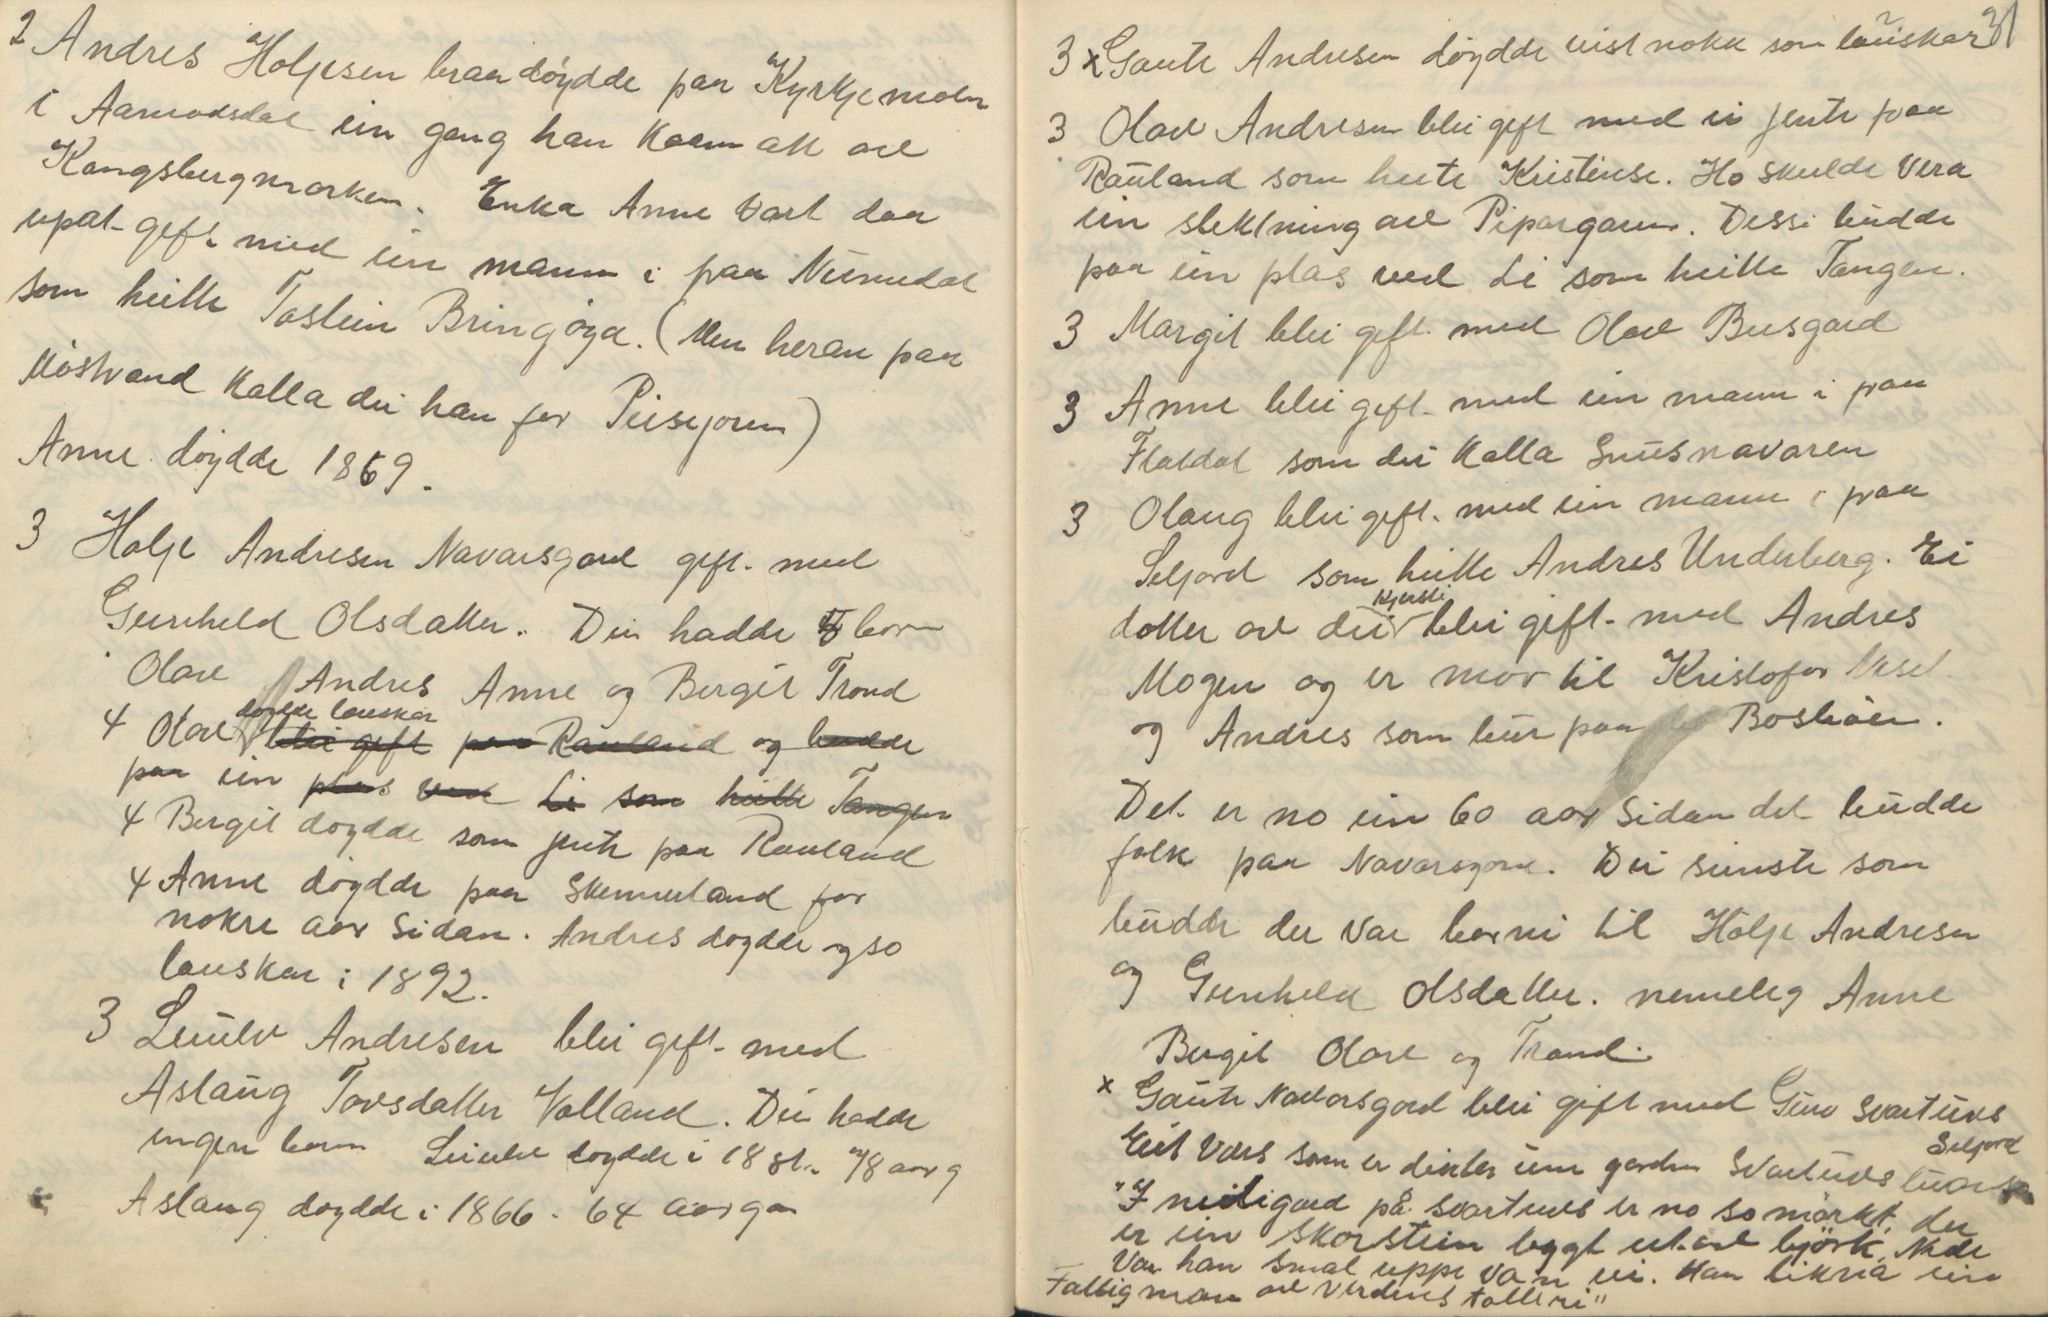 2 Andres Holjesen braadöydde paa Kyrkjemoen
i Aamodsdal ein gang han kaam att ave
Kongsbergmarken. Enka Anne vart daa
upat-gift med ein mann i fraa Numedal
som heitte Tostein Bringöya. (Men heran paa
Möstvand kalla dei han for Peisejoren)
Anne döydde 1869.
3 Holje Andresen Navarsgard gift. med
Gunheld Olsdatter. Dei hadde 5 born
Olave Andres Anne og Bergit Trond
döydde lauskar
4 Olave blei gift paa Rauland og budde
paa ein plass ved Li som heitte Tangen
4 Bergit doydde som jente paa Rauland
4 Anne döydde paa Skinnarland for
nokre aar sidan. Andres doydde ogso
lauskar i 1892.
3 Leiulv Andresen blei gift- med
Aslaüg Tovsdatter Volland. Dei hadde
ingen born Leiulv doydde i 1881. 78 aar g
Aslaug doydde i 1866. 64 aar ga
31
3 x Gaute Andresen döydde vist nokk som lauskar?
3 Olave Andresen blei gift med ei jente fraa
Raüland som heete Kristense. Ho skulde vera
ein slektning ave Pipargaren. Dessi büdde
paa ein plas ved Li som heitte Tangen.
3 Margit blei gift. med Olave Busgard
3 Anne blei gift- med ein mann i fraa
Flatdal som dei kalla Snüsnavaren
3 Olaug blei gift. med ein mann i fraa
Seljord som heitte Andres Underberg. Ei
Kjersti
dotter ave dei blei gift- med Andres
Mogen og er mor til Kristofer Vesl
og Andres som bür paa Bosböen.
Det er no ein 60 aar sidan det büdde
folk paa Navarsgard. Dei seinste som
büdde der var borni til Holje Andresen
og Gunheld Olsdatter. nemeleg Anne
Bergit Olave og Trond.
x Gaüte Navarsgard blei gift med Guro Svartuvs
Seljord
Eit Vers som er dikter um garden Svartuvs
"I neiligard på Svartuvs er no so mörkt, der
er ein skorstein bygt ut-ave björk, Nede
Var han smal uppe va'n vi. Han likna ein
Fattigmann ave Verdens talleri"